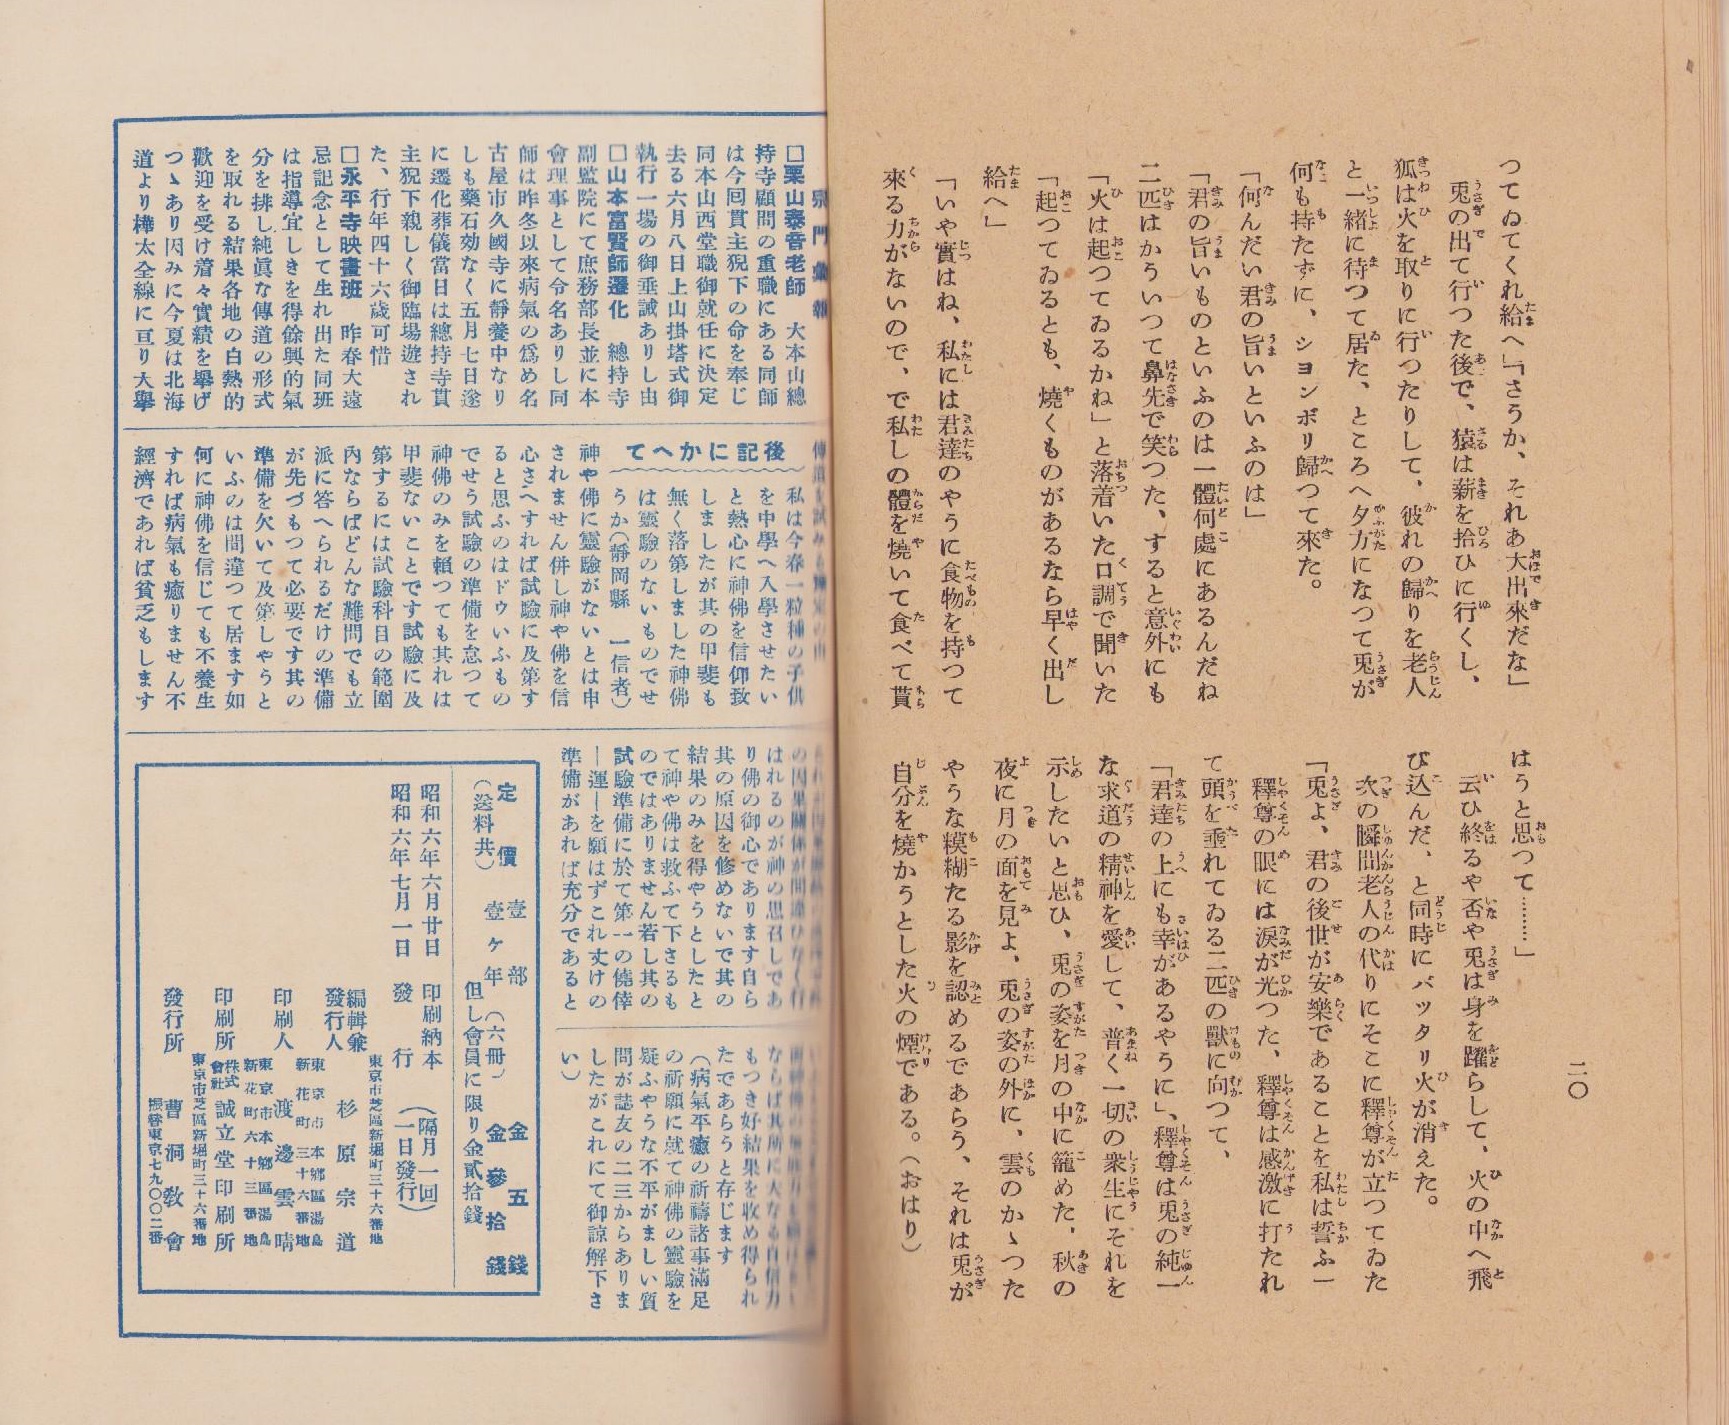 つてゐてくれ給へ」「さうか、それあ大出來だな」
兎の出て行つた後で、猿は薪を拾ひに行くし、
狐は火を取りに行つたりして、彼れの歸りを老人
と一緒に待つて居た、ところへ夕方になつて兎が
何も持たずに、シヨンボリ歸つて來た。
「何んだい君の旨いといふのは」
「君の旨いものといふのは一體何處にあるんだね
二匹はかういつて鼻先で笑つた、すると意外にも
「火は起つてゐるかね」と落着いた口調で聞いた
「起つてゐるとも、燒くものがあるなら早く出し
給へ」
「いや實はね、私には君達のやうに食物を持つて
來る力がないので、で私しの體を燒いて食べて貰
はうと思つて………」
云ひ終るや否や兎は身を躍らして、火の中へ飛
び込んだ、と同時にバッタリ火が消えた。
次の瞬間老人の代りにそこに釋尊が立つてゐた
「兎よ、君の後世が安樂であることを私は誓ふ―
釋尊の眼には淚が光つた、釋尊は感激に打たれ
て頭を垂れてゐる二匹の獸に向つて、
「君達の上にも幸があるやうに」、釋尊は兎の純一
な求道の精神を愛して、普く一切の衆生にそれを
示したいと思ひ、兎の姿を月の中に籠めた、秋の
夜に月の面を見よ、兎の姿の外に、雲のかゝつた
やうな糢糊たる影を認めるであらう、それは兎が
自分を燒かうとした火の煙である。（おはり）
二〇
宗門彙報
□栗山泰音老師　大本山總
持寺顧問の重職にある同師
は今回貫主猊下の命を奉じ
同本山西堂職御就任に決定
去る六月八日上山掛塔式御
執行一場の御垂誡ありし由
□山本富賢師遷化　總持寺
副監院にて庶務部長並に本
會理事として令名ありし同
師は昨冬以來病氣の爲め名
古屋市久國寺に靜養中なり
しも藥石効なく五月七日遂
に遷化葬儀當日は總持寺貫
主猊下親しく御臨場遊され
た、行年四十六歲可惜
□永平寺映畫班　昨春大遠
忌記念として生れ出た同班
は指導宜しきを得餘興的氣
分を排し純眞な傳道の形式
を取れる結果各地の白熱的
歡迎を受け着々實績を擧げ
つゝあり因みに今夏は北海
道より樺太全線に亘り大擧
後記にかへて
私は今春一粒種の子供
を中學へ入學させたい
と熱心に神佛を信仰致
しましたが其の甲斐も
無く落第しました神佛
は靈驗のないものでせ
うか（靜岡縣　一信者）
神や佛に靈驗がないとは申
されません併し神や佛を信
心さへすれば試驗に及第す
ると思ふのはドウいふもの
でせう試驗の準備を怠つて
神佛のみを賴つても其れは
甲斐ないことです試驗に及
第するには試驗科目の範圍
內ならばどんな難問でも立
派に答へられるだけの準備
が先づもつて必要です其の
準備を欠いて及第しやうと
いふのは間違つて居ます如
何に神佛を信じても不養生
すれば病氣も癒りません不
經濟であれば貧乏もします
の因果關係が間違ひなく行
はれるのが神の思召しであ
り佛の御心であります自ら
其の原因を修めないで其の
結果のみを得やうとしたと
て神や佛は救ふて下さるも
のではありません若し其の
試驗準備に於て第一の僥倖
―運―を願はずこれ丈けの
準備があれば充分であると
ならば其所に大なる自信力
もつき好結果を收め得られ
たであらうと存じます
（病氣平癒の祈禱諸事滿足
の祈願に就て神佛の靈驗を
疑ふやうな不平がましい質
問が誌友の二三からありま
したがこれにて御諒解下さ
い）
定價　壹部　金五錢
（送料共）　壹ヶ年（六冊）　金參拾錢
但し會員に限り金貳拾錢
昭和六年六月廿日　印刷納本
昭和六年七月一日　發行　（隔月一回一日發行）
東京市芝區新堀町三十六番地
編輯兼發行人　杉原宗道
東京市本鄕區湯島新花町三十六番地
印刷人　渡邊雲晴
東京市本鄕區湯島新花町六十三番地
印刷所　株式會社　誠立堂印刷所
東京市芝區新堀町三十六番地
發行所　曹洞敎會
振替東京七九〇〇二番